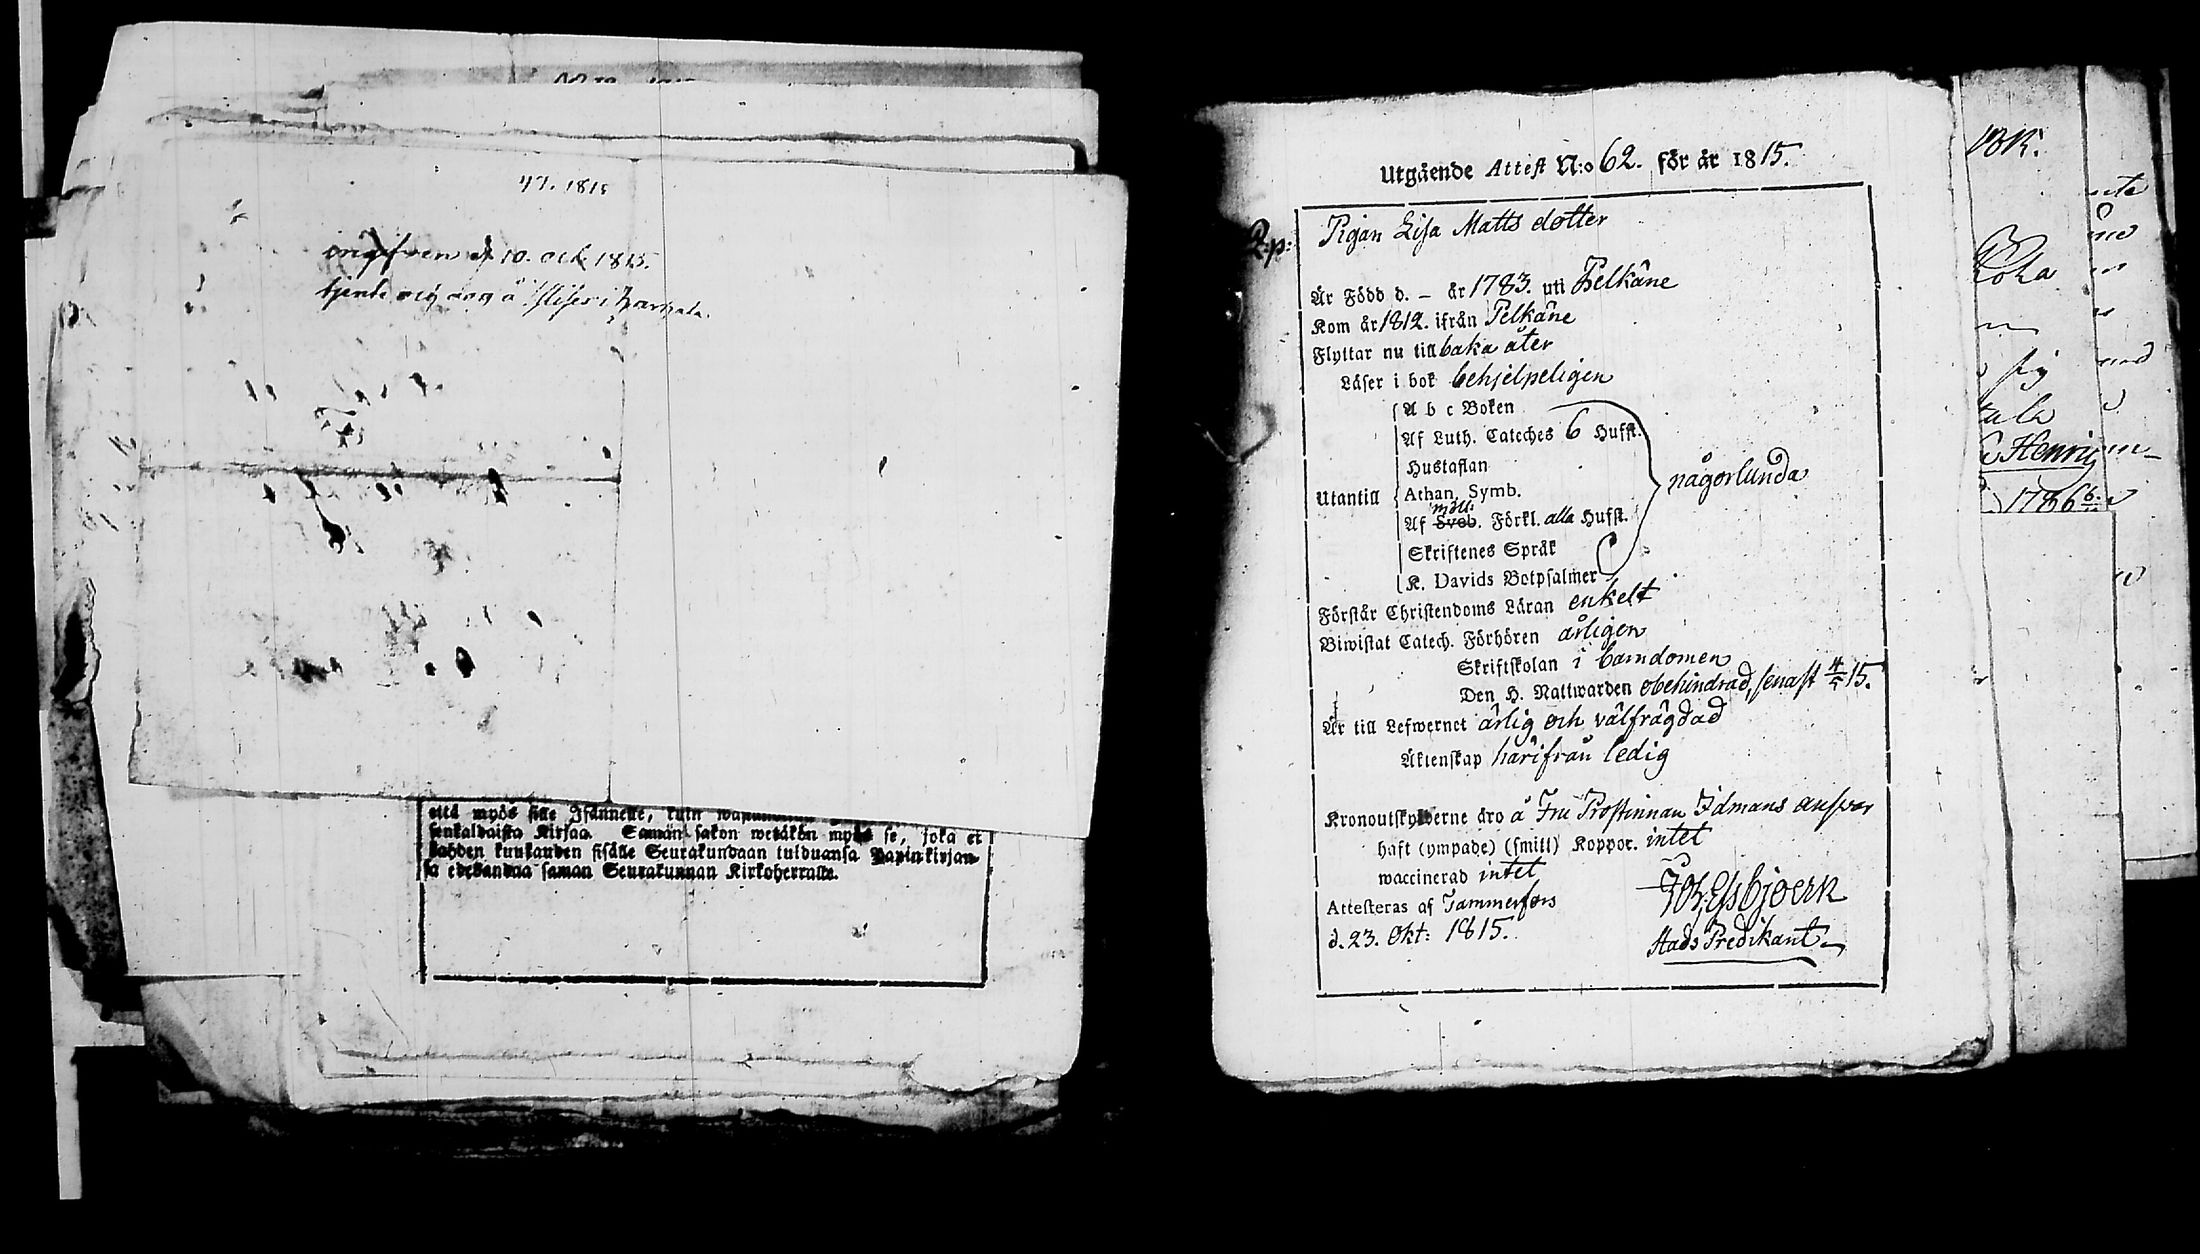 47. 1815
d 10. oct 1815.
että myös sille Isännelle, kuin
senkaldaista Kirjaa. Saman sakon wetäkön myös se, joka ei
kahden kuukauden sisälle Seurakundaan tulduansa Papinkirjan-
sa edesanna saman Seurakunnan Kirkoherralle.
Utgående Attest N:o 62. för år 1815.
Pigan Lisa Matts dotter
Är Född d. – år 1783. uti Pelkäne
Kom år 1812. ifrån Pelkäne
Flyttar nu tillbaka åter
Läser i bok behjelpeligen
A b c Boken
Af Luth. Cateches 6 Hufst.
Hustaflan
Utantill Athan. Symb. någorlunda
Af Sveb. Förkl. alla Hufst.
Skriftenes Språk
K. Davids Botpsalmer
Förstår Christendoms Läran enkelt
Biwistat Catech. Förhören årligen
Skriftskolan i barndomen
Den H. Nattwarden obehindrad, senast 4/5 15.
Är till Lefwernet ärlig och välfrägdad
Äktenskap härifrån ledig
Kronoutskylderne äro å Fru Prostinnan Idmans answar
haft (ympade) (smitt) Koppor. intet
waccinerad intet
Attesteras af Tammerfors
d. 23. Okt: 1815.
Joh. Essbjoern
Stads Predikant
Henric
1786